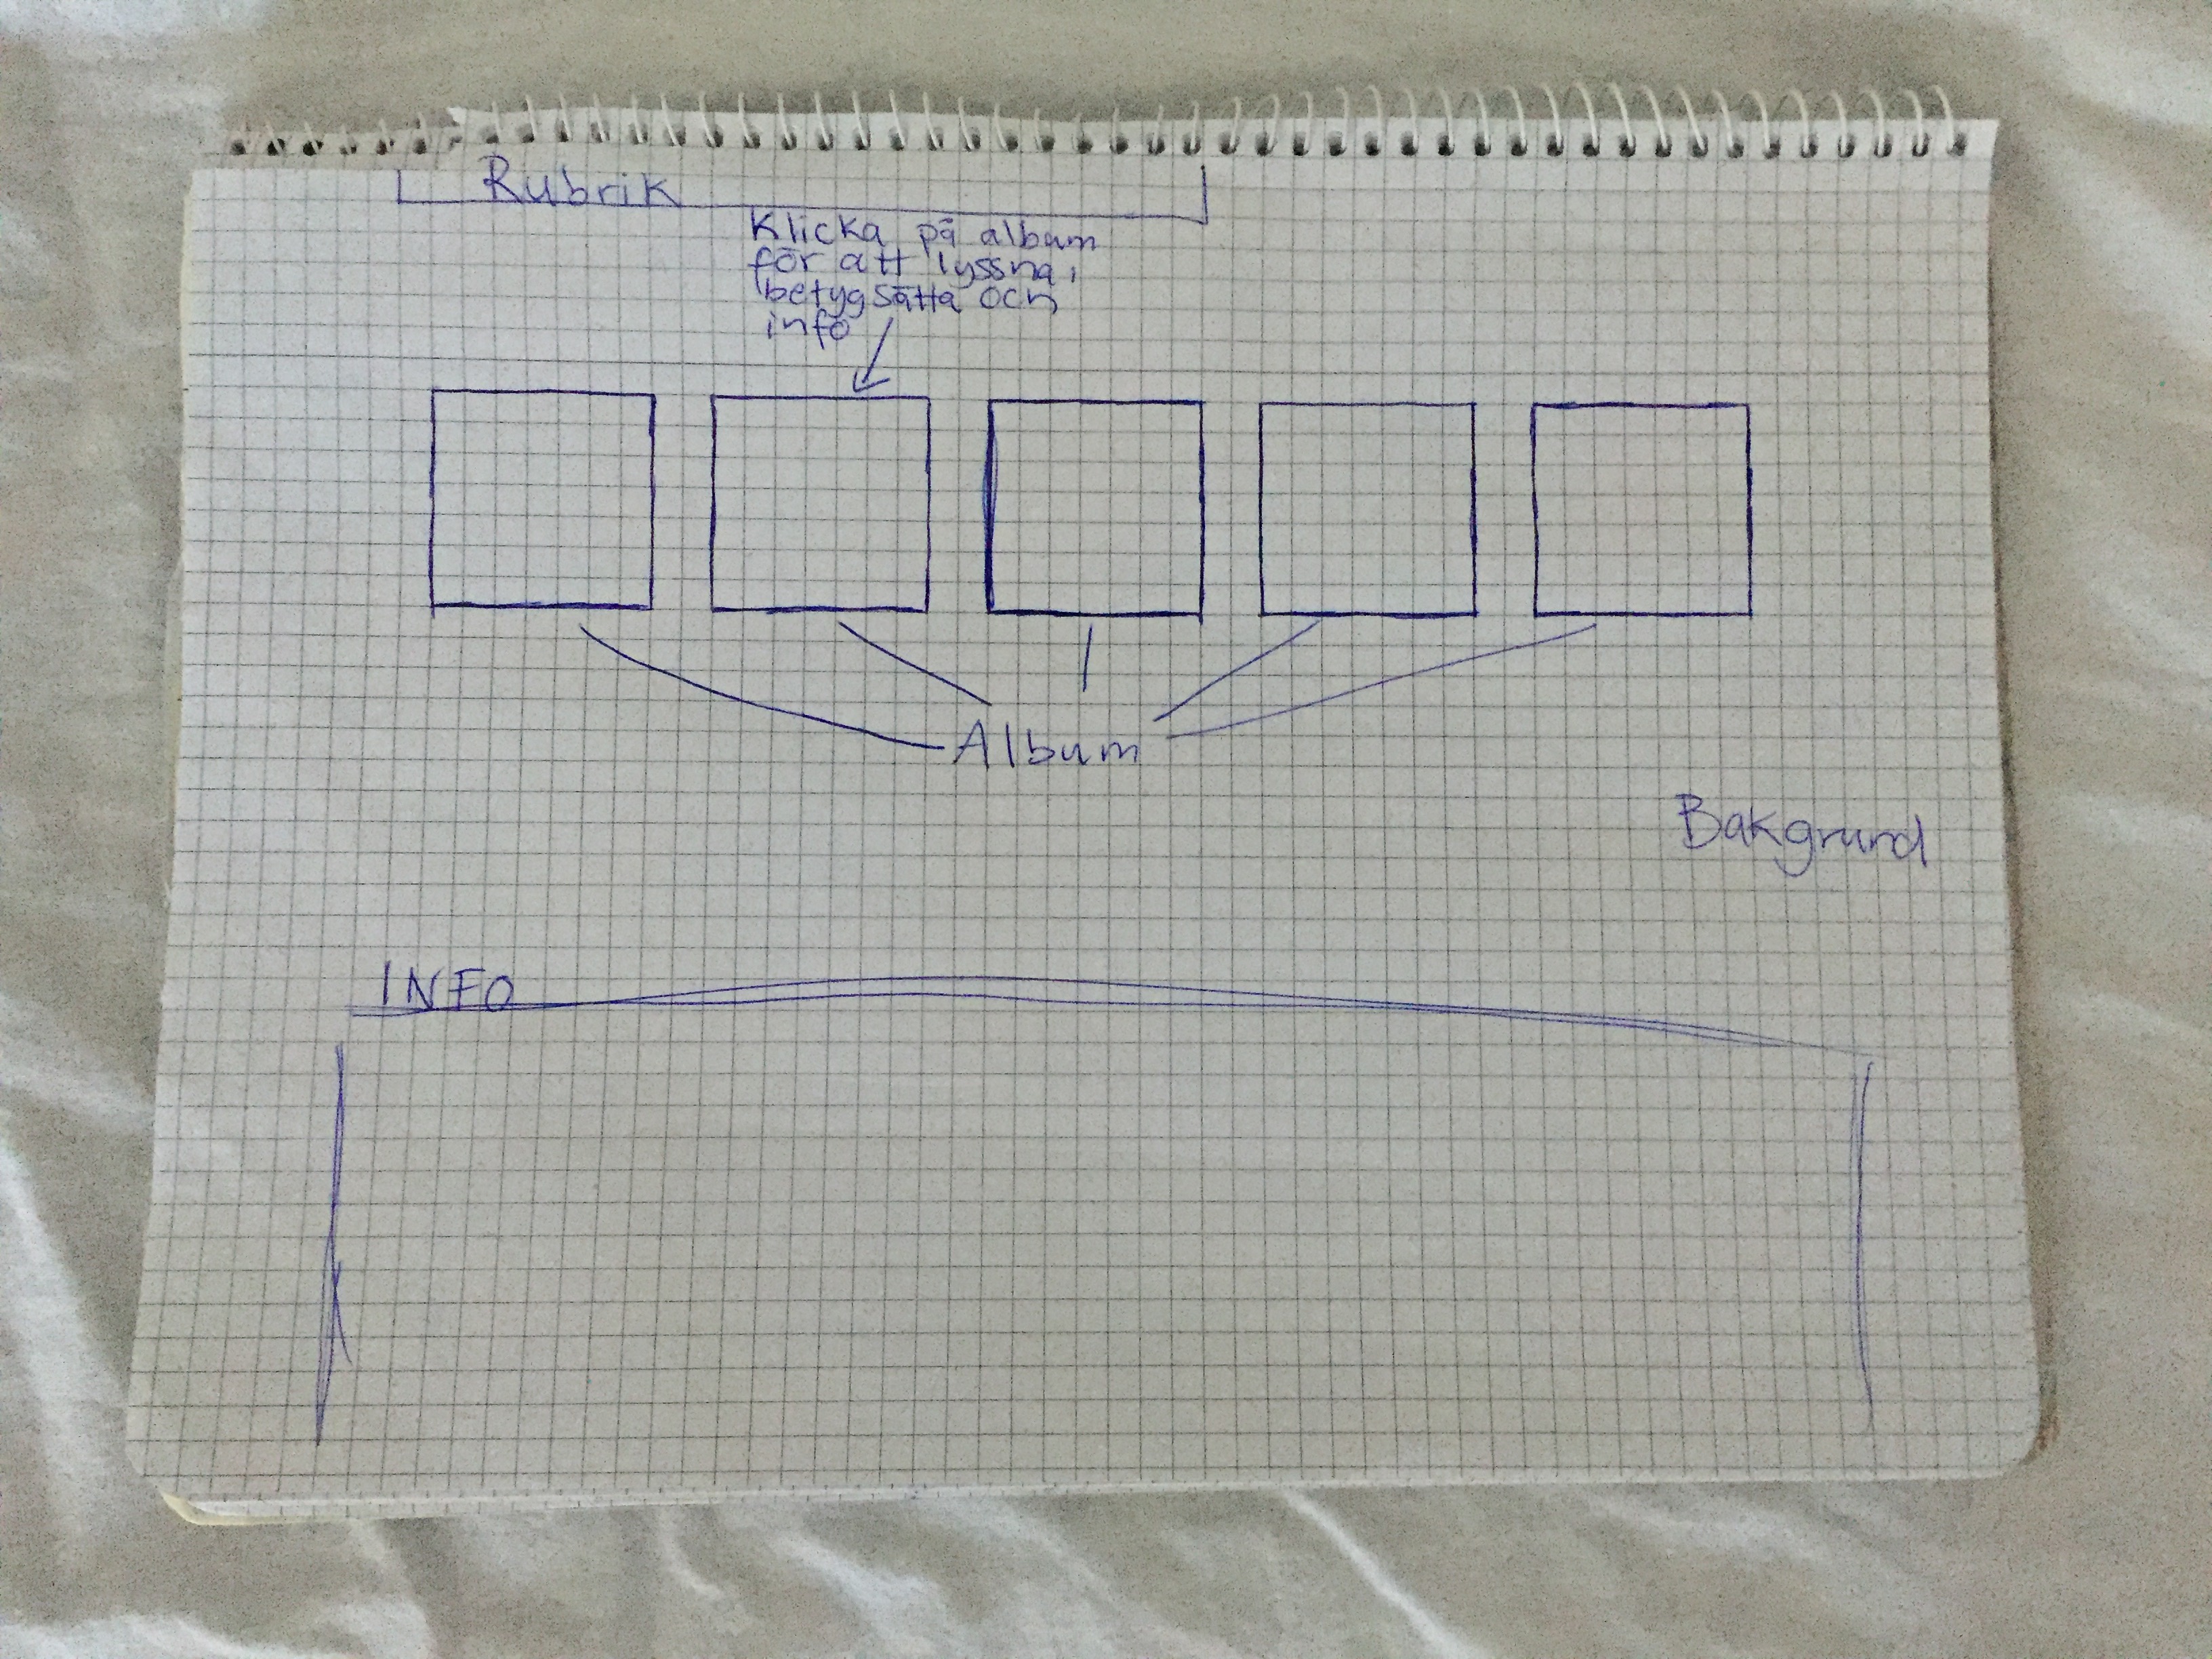 Rubrik
Klicka på album
för att lyssna,
betygsätta och
info
Album
Bakgrund
INFO